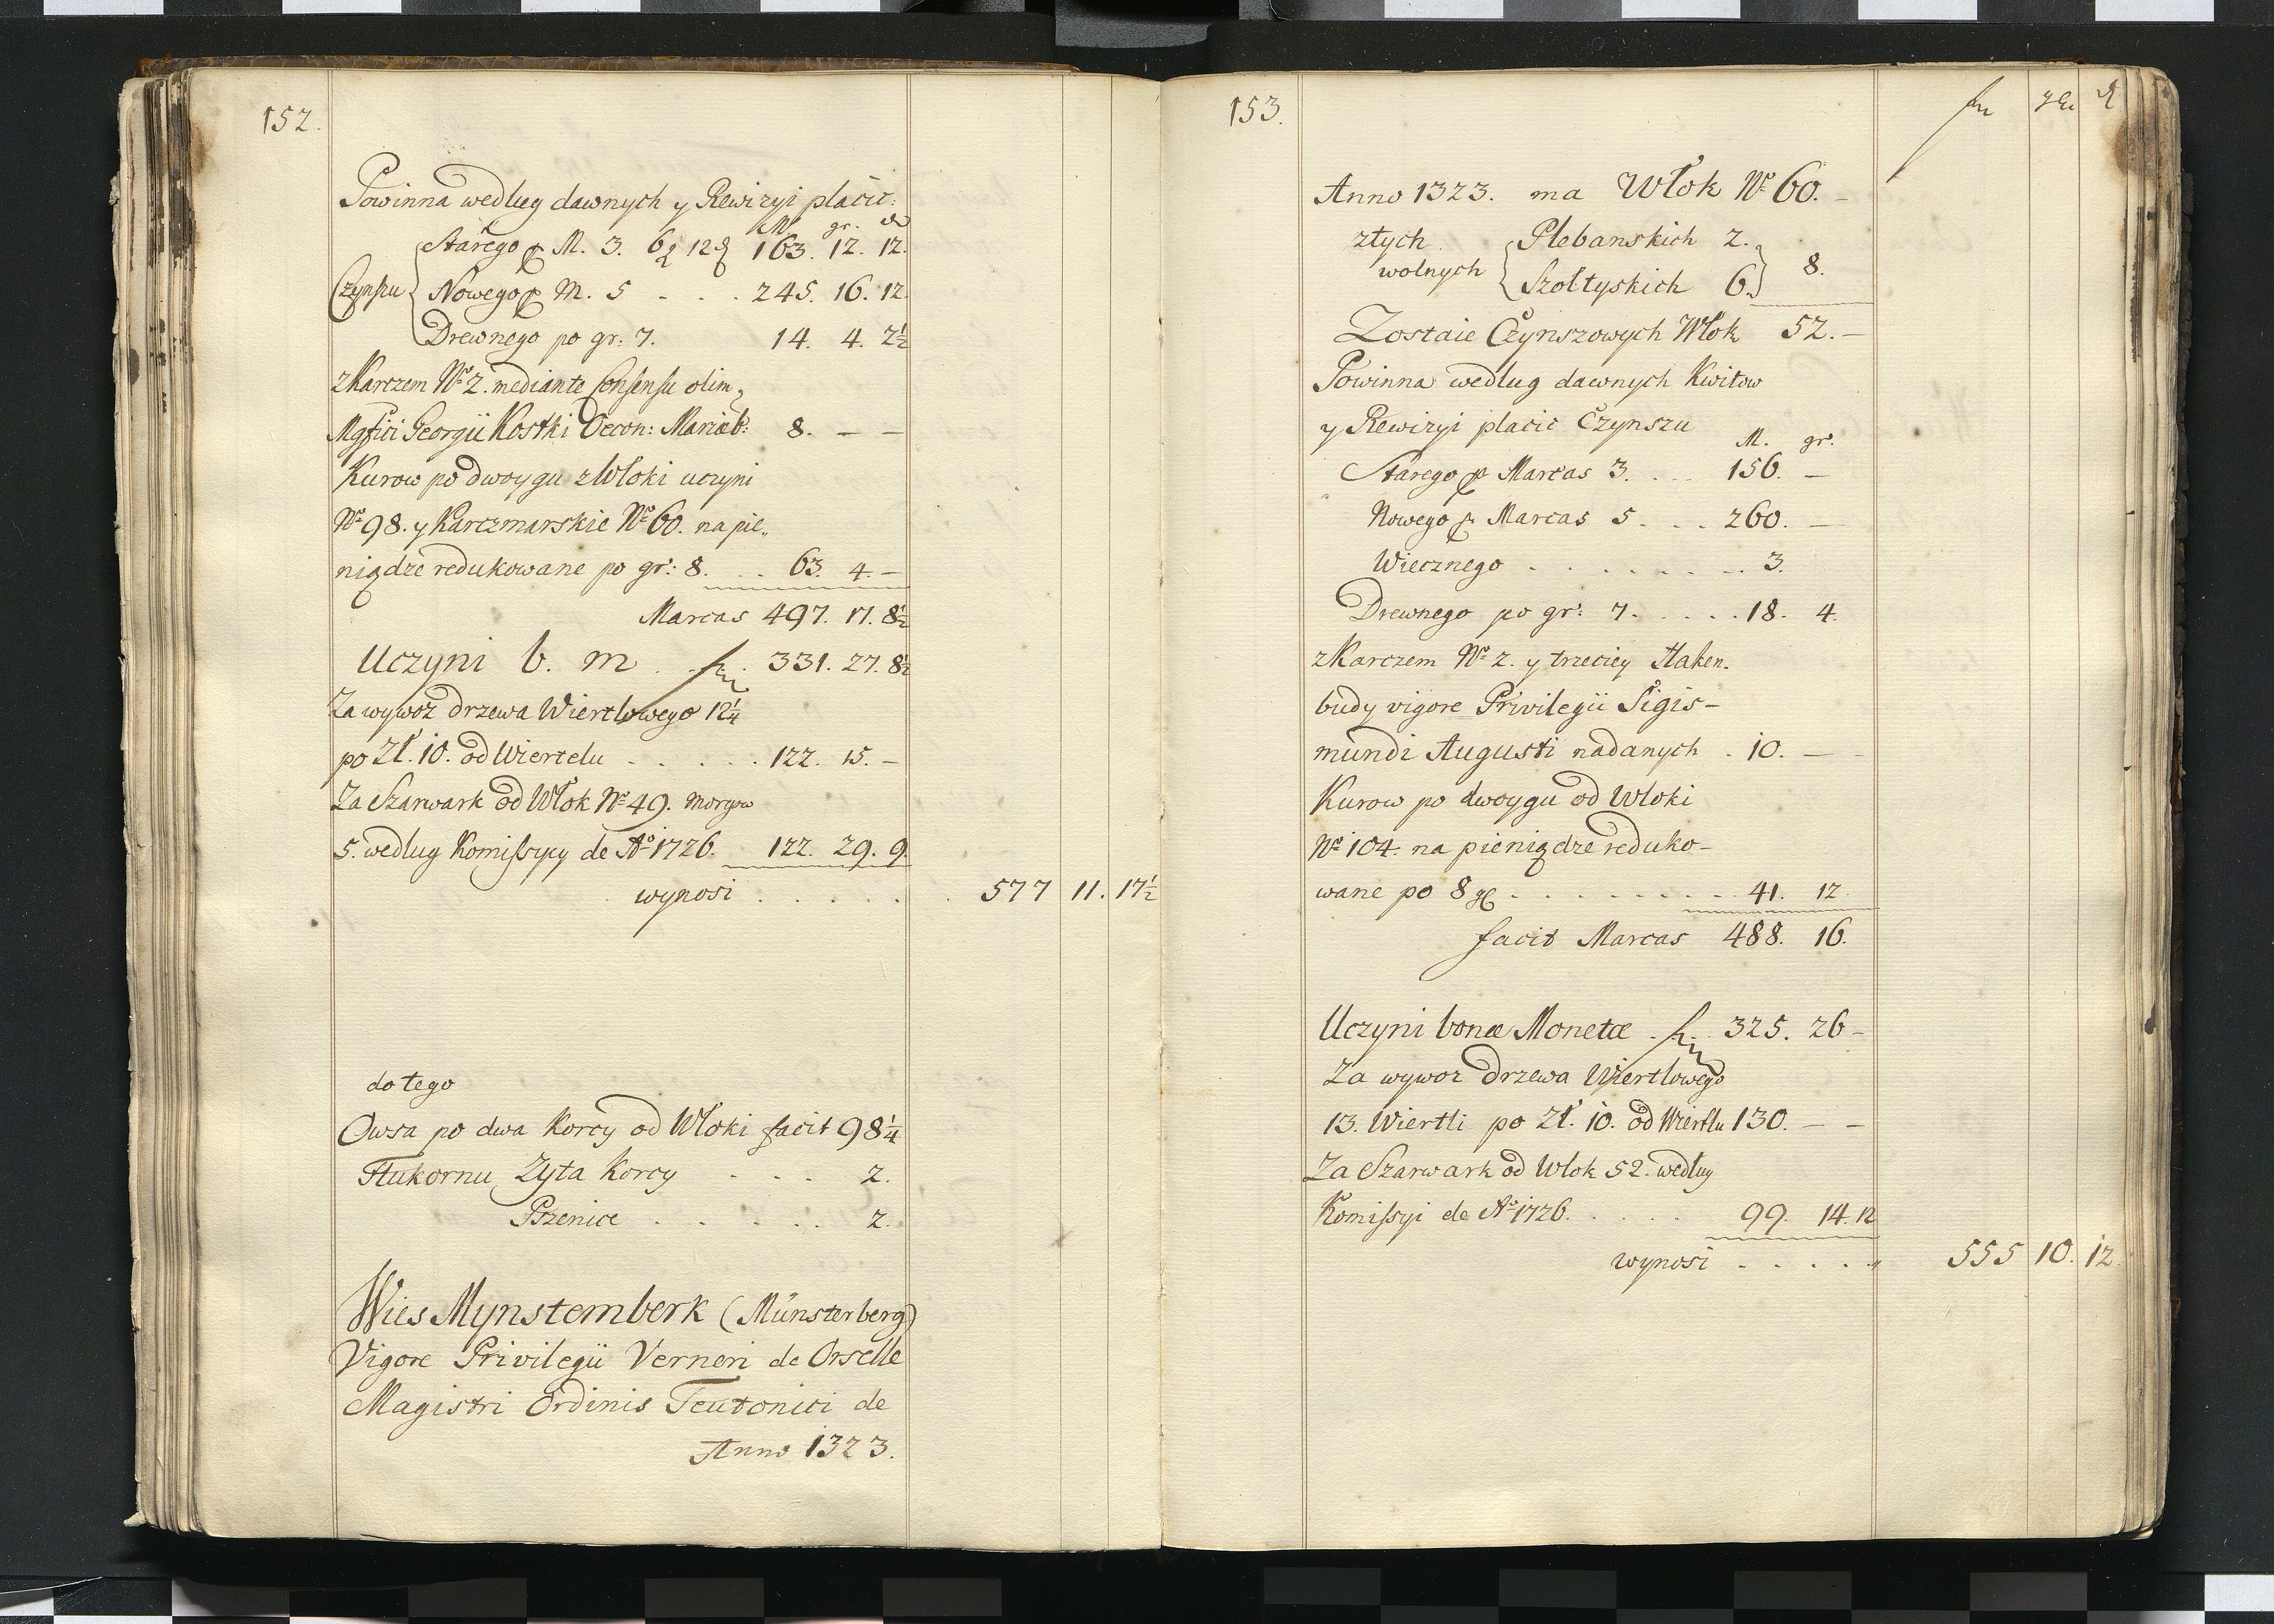 152.
Powinna wedlug dawnych y Rewizyi placic:
M. gr.
Czynszu
Starego p M. 3. 163. 12. 12.
Nowego p M. 5 - . . . 245. 16. 12.
Drewnego po gr: 7. 14. 4. 2½
z Karczem No 2. mediante Consensu olim
Mgfici Georgii Kostki Oecon: Mariæb: 8. — —
Kurow po dwoygu z Wloki uczyni
No 98. y Karczmarskie No 60. na pie„
niądze redukowane po gr: 8. . . 63. 4. —
Marcas 497. 17. 8½
Uczyni b. m . . 331. 27. 8½
Za wywoz drzewa Wiertlowego 12¼
po Zł. 10. od Wiertelu . . . . . 122. 15. —
Za Szarwark od Włok No 49. morgow
5. wedlug Komissyy de Ao 1726. 122. 29. 9.
wynosi . . . . . 577 11. 17½
do tego
Owsa po dwa Korcy od Włoki facit 98¼
Hukornu Zyta Korcy . . . 2.
Pszenice . . . . . 2.
Wies Mynstemberk (Münsterberg)
Vigore Privilegii Verneri de Orselle
Magistri Ordinis Teutonici de
Anno 1323.
153.
Anno 1323. ma Włok No 60. —
z tych
wolnych
Plebanskich 2.
Szołtyskich 6.
8.
Zostaie Czynszowych Włok 52. —
Powinna wedlug dawnych Kwitow
y Rewizyi placic Czynszu
M. gr.
Starego p Marcas 3. . . . 156. —
Nowego p Marcas 5. . . . 260. —
Wiecznego . . . . . . . 3.
Drewnego po gr: 7. . . . . 18. 4.
z Karczem No 2. y trzeciey Haken.
budy vigore Privilegii Sigis-
mundi Augusti nadanych . 10. — -
Kurow po dwoygu od Wloki
No 104. na pieniądze reduko-
wane po 8 . . . . . . . . 41. 12.
facit Marcas 488. 16.
Uczyni bonæ Monetæ . . 325. 26 —
Za wywoz drzewa Wiertlowego
13. Wiertli po Zł. 10. od Wiertlu 130. — —
Za Szarwark od Wlok 52. wedlug
Komissyi de Ao 1726. . . . . 99. 14. 12
wynosi . . . . . 555 10. 12